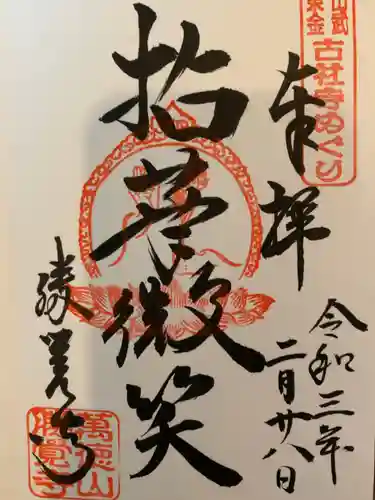 山武
東金
古社寺めぐり
奉拝
令和三年
二月廿八日
拈華微笑
勝覚寺
萬徳山
勝覚寺